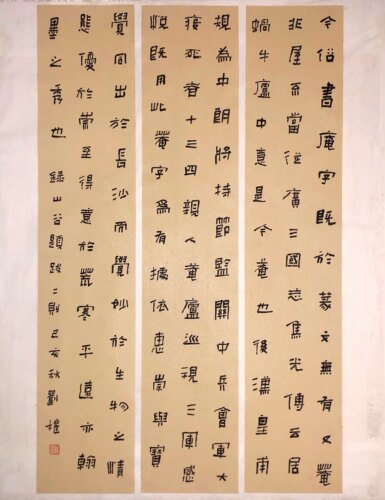 今俗書庵字既於篆文無有又菴
非屋不當從廣三國志焦光傳云居
蝸牛廬中意是今菴也後漢皇甫
規為中郎將持節監關中兵會軍大
疫死者十三四親入菴廬巡視三軍感
悅既用此菴字為有據依惠崇與寶
覺同出於長沙而覺妙於生物之情
態優於崇至得意於荒寒平遠亦翰
墨之秀也 錄山谷題跋二則己亥秋劉